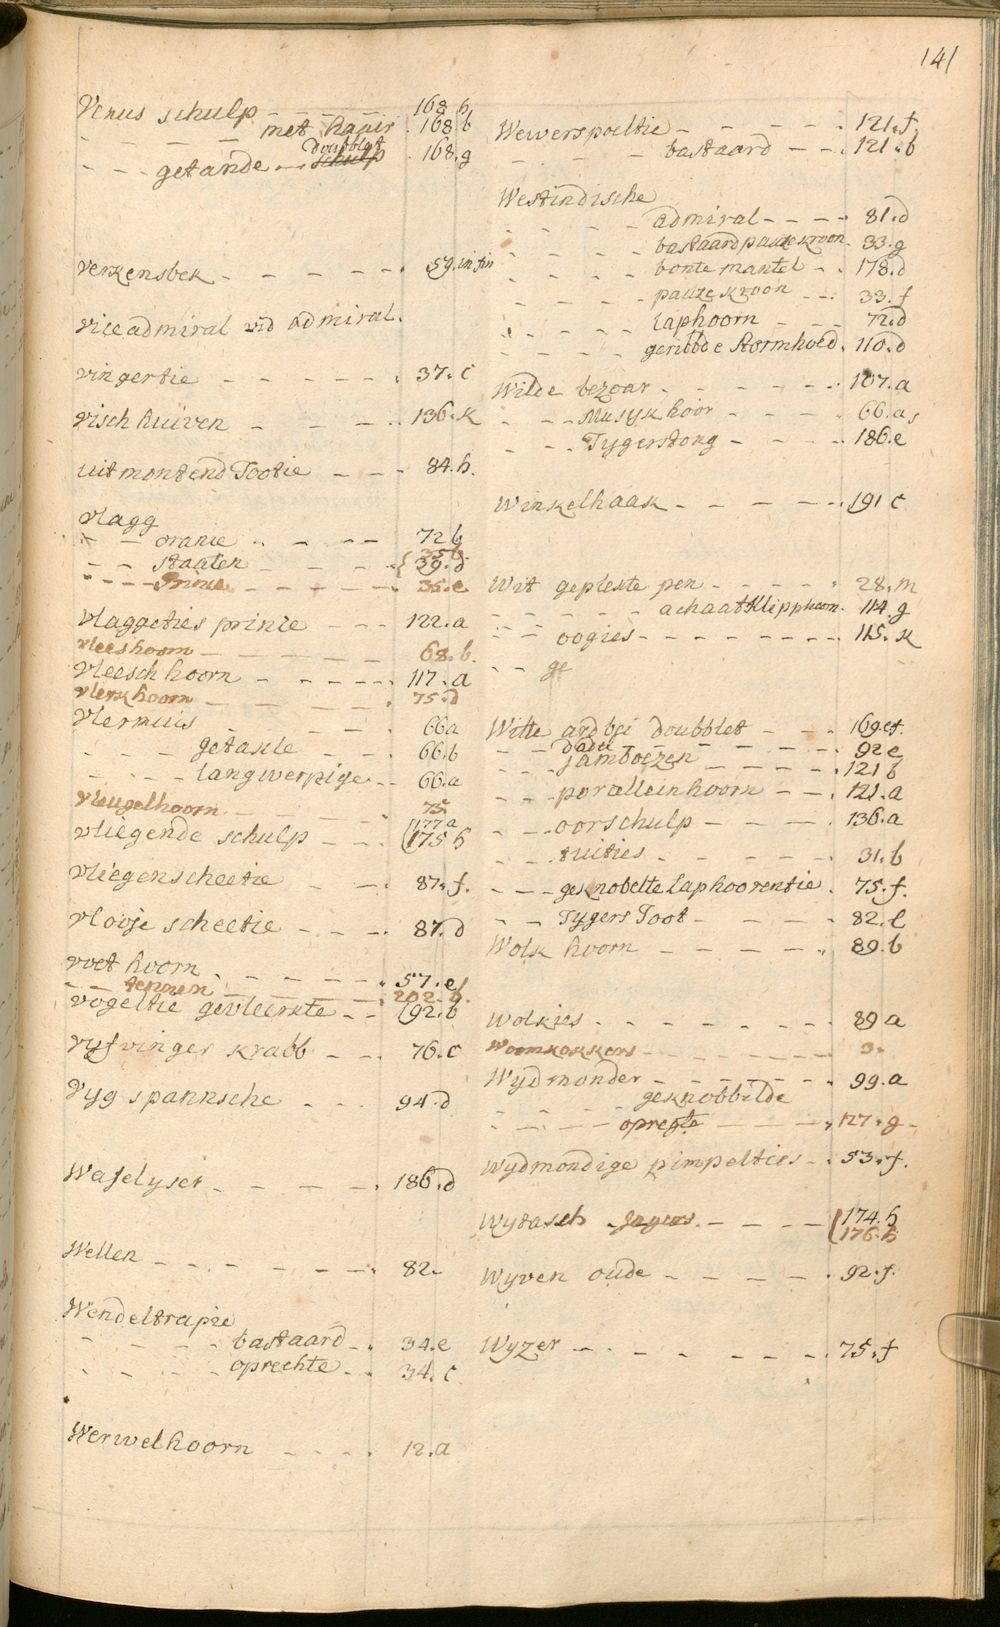 141
Venus schulp - - - - 168 h
- - - - met haair . 168 b
- - - getande - - schulp doubblet . 168.g
Verkensbek - - - - - 59.in fin
Vice admiral vid admiral.
Vingertie - - - - - . 37.c
Visch huiven - - - - . 136.k
Uitmontend Tootie - - - 84.h.
Vlagg
- - oranie - - - - 72 b
- - staaten - - - - - { 35 b. 39.d
- - - - Prince - - - - - 35.e
Vlaggeties prince - - - 122.a
Vleeshoorn - - - - - - 68.b.
Vleesch hoorn - - - - - 117.a
Vlerkhoorn - - - - - - 75.d
Vlermuis - - - - - 66a
- - - getaxle - - - 66.b
- - - - langwerpige - - 66.a
Vleugelhoorn - - - - - 75
Vliegende schulp - - - { 177a 175 h
Vliegenscheetie - - - 87.f.
Vlooje scheetie - - - - 87.d
Voet hoorn - - - - - - . 57.e
- - tennen - - - - - - 202.b.
Vogeltie gevleerkte - - 92.b
Vyfvinger krabb - - . 76.c
Vyg spannsche - - - 94.d
Wafelyser - - - - - . 186.d
Wellen - - - - - - - - . 82.
Wendeltrapie
- - - - bastaard - . 34.e
- - - - oprechte - - 34.c
Werwelhoorn - - - - . 12.a
Weverspoeltie - - - - - . 121.f
- - - - bastaard - - . 121.b
Westindische
- - - - admiral - - - - 81.d
- - - - bastaard pauzekroon - 33.g
- - - - bonte mantel - - 178.d
- - - - pauzekroon - - - 33.f
- - - - laphoorn - - - 72.d
- - - - geribbde stormhoed . 110.d
Wilde bezoar - - - - - - . 107.a
- - - Musykhoor - - - - - 66.a
- - - Tygerstong - - - - 186.e
Winkelhaak - - - - - - . 191 c
Wit gepleste pen - - - - - . 28.m
- - - - - achaatklipphoorn . 114.g
- - oogies - - - - - - - - 115.k
- - ge
Witte ardbei doubblet - - - 169.et.
- - dadel - - - - - - 92 e
- - jamboezen - - - - - 121 b
- - - porcelleinhoorn - - . 121.a
- - - oorschulp - - - - - 136.a
- - - tuities - - - - - 31.b
- - - geknobelte laphoorentie . 75.f.
- - Tygers Toot - - - - - 82.l
Wolk hoorn - - - - - - 89.b
Wolkies - - - - - - - - 89 a
Woornkokkers - - - - - - 3.
Wydmonder - - - - - - - 99.a
- - - - geknobbelde
- - - - opregte - - - - , 127.g
Wydmondige pimpelties - . 53.f.
Wytasch Jagers - - - - - { 174.h 176.h
Wyven oude - - - - - - . 92.f.
Wyzer - - - - - - - - . 75.f